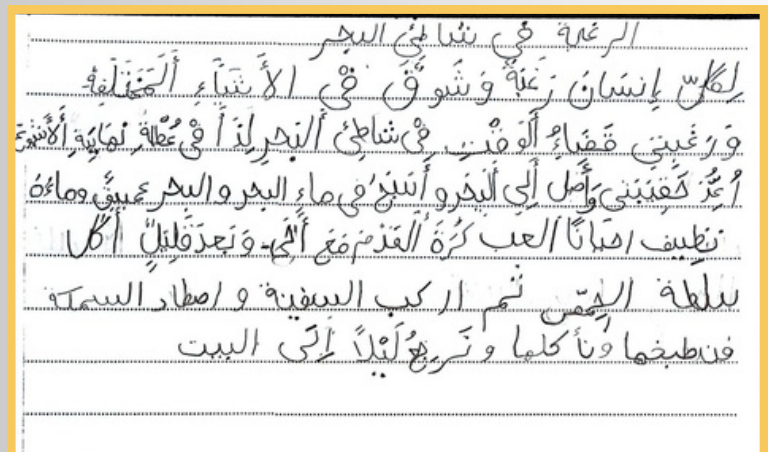 الرغبة في شاطئ البحر
لِكُلِّ إِنسَانَ رَغبَةٌ وَ شَوقٌ فِي الأَشيَاءِ أَلمُخْتَلِفَةِ
وَرَغبَتِي قَضَاءُ أَلوَقْتِ فِي شاطئ أَلبَحرِ لِذَا فِي عُطْلَةِ نِهَايَةِ
أُعِدُّ حَقِيبَتِي وَأَصِل إِلَي أَلبَحَرِ و أَسبَحُ في ماءِ البحر و البحر عميقٌ وماءُهُ
نظيف احيانًا العب كُرَةَ القَدَمِ مَعَ أَخِي وَ بَعدَ قَلِيلٍ أكل
سلطة الحِمّص ثم اركب السفينة و اصطاد السمكة
فنطبخها وَنأكلها و نَرجِعُ لَيْلاً إِلَى البيت